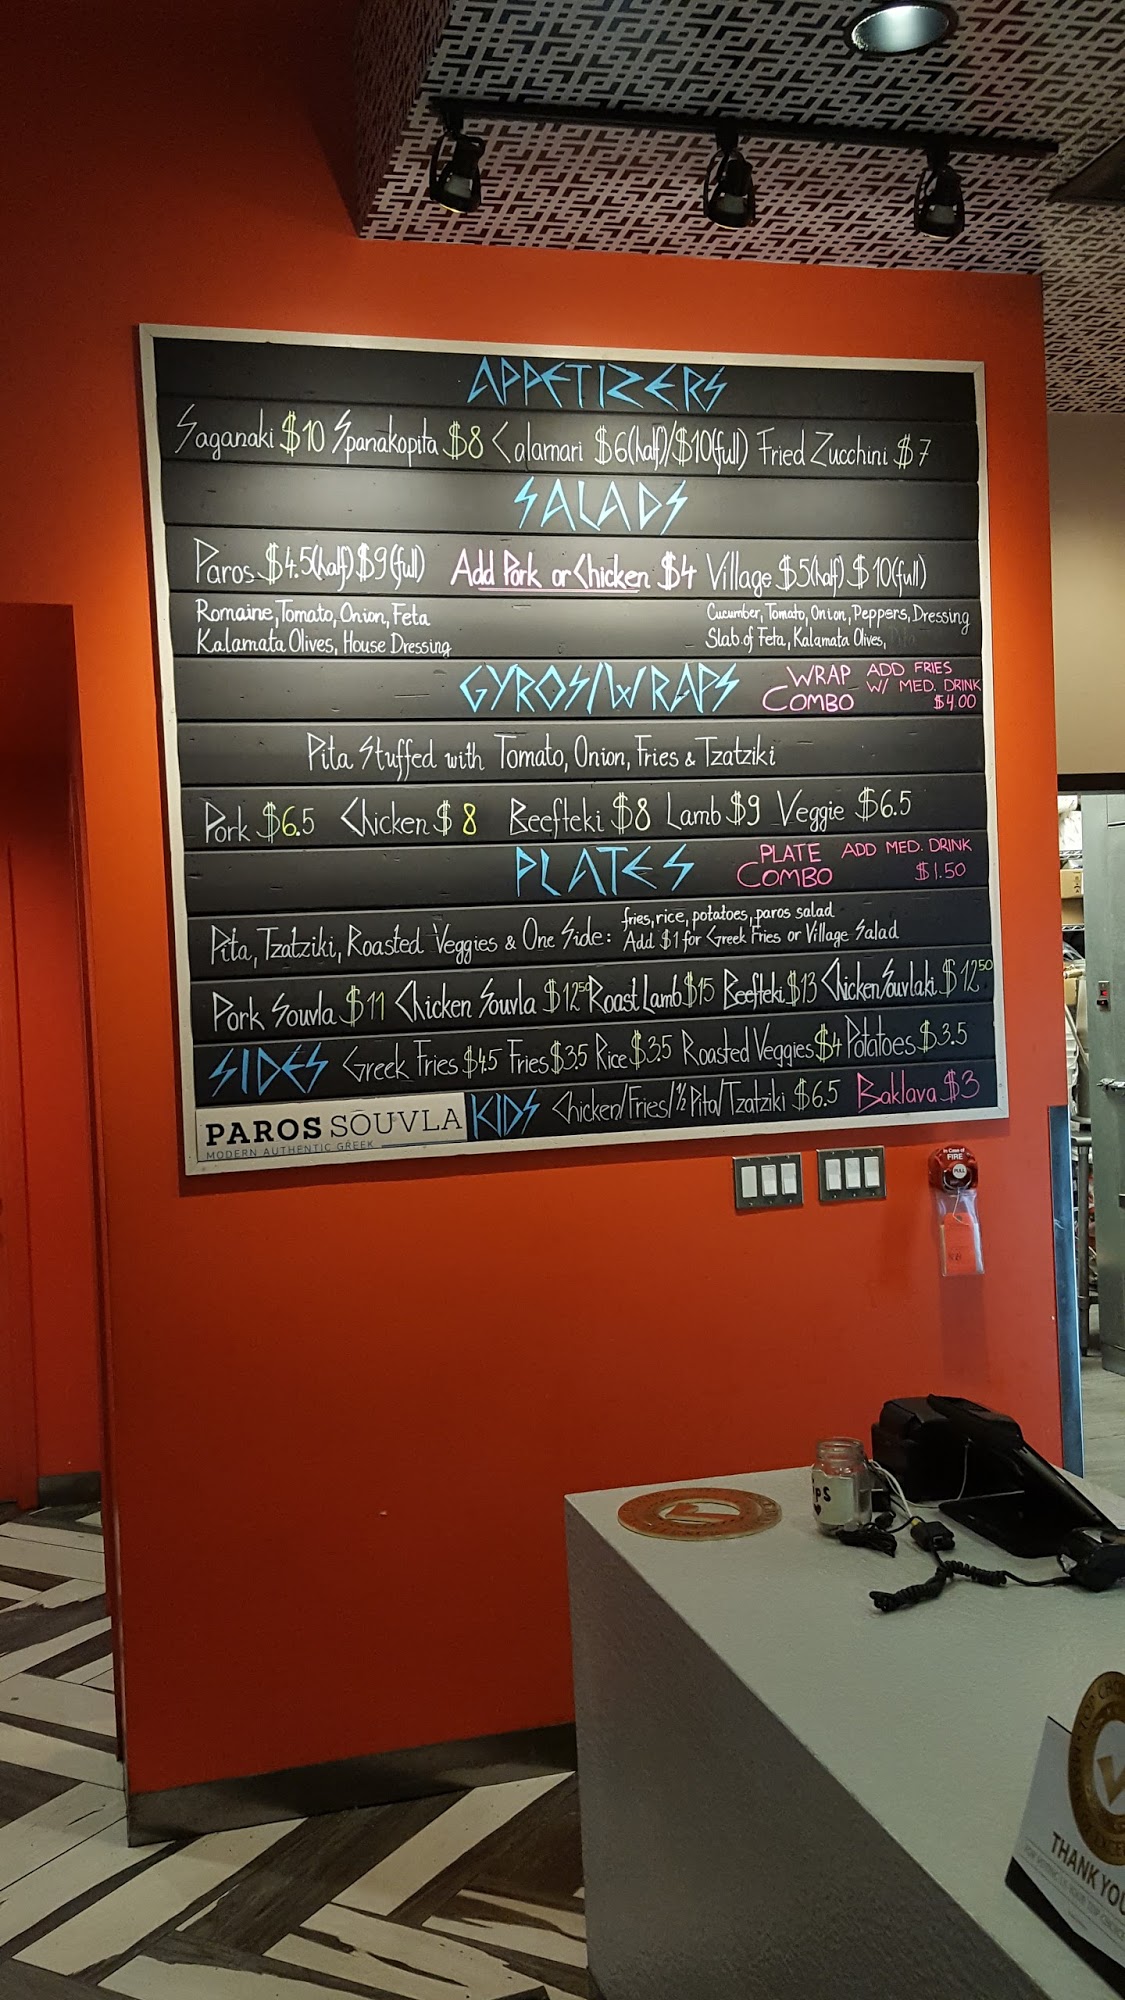 APPETIZERS
Saganaki $10 Spanakopita $8 Calamari $6(half)/$10(full) Fried Zucchini $7
SALADS
Paros $4.5(half) $9(full) Add Pork or Chicken $4 Village $5(half) $10(full)
Romaine, Tomato, Onion, Feta
Kalamata Olives, House Dressing
Cucumber, Tomato, Onion, Peppers, Dressing
Slab of Feta, Kalamata Olives,
GYROS/WRAPS
WRAP COMBO
ADD FRIES
W/ MED. DRINK
$4.00
Pita Stuffed with Tomato, Onion, Fries & Tzatziki
Pork $6.5 Chicken $8 Beefteki $8 Lamb $9 Veggie $6.5
PLATES
PLATE COMBO
ADD MED. DRINK
$1.50
Pita, Tzatziki, Roasted Veggies & One Side:
fries, rice, potatoes, paros salad
Add $1 for Greek Fries or Village Salad
Pork Souvla $11 Chicken Souvla $12.50 Roast Lamb $15 Beefteki $13 Chicken Souvlaki $12.50
SIDES Greek Fries $4.5 Fries $3.5 Rice $3.5 Roasted Veggies $4 Potatoes $3.5
KIDS Chicken/Fries/½ Pita/Tzatziki $6.5 Baklava $3
PAROS SOUVLA
MODERN AUTHENTIC GREEK
In Case of
FIRE
PULL
THANK YOU